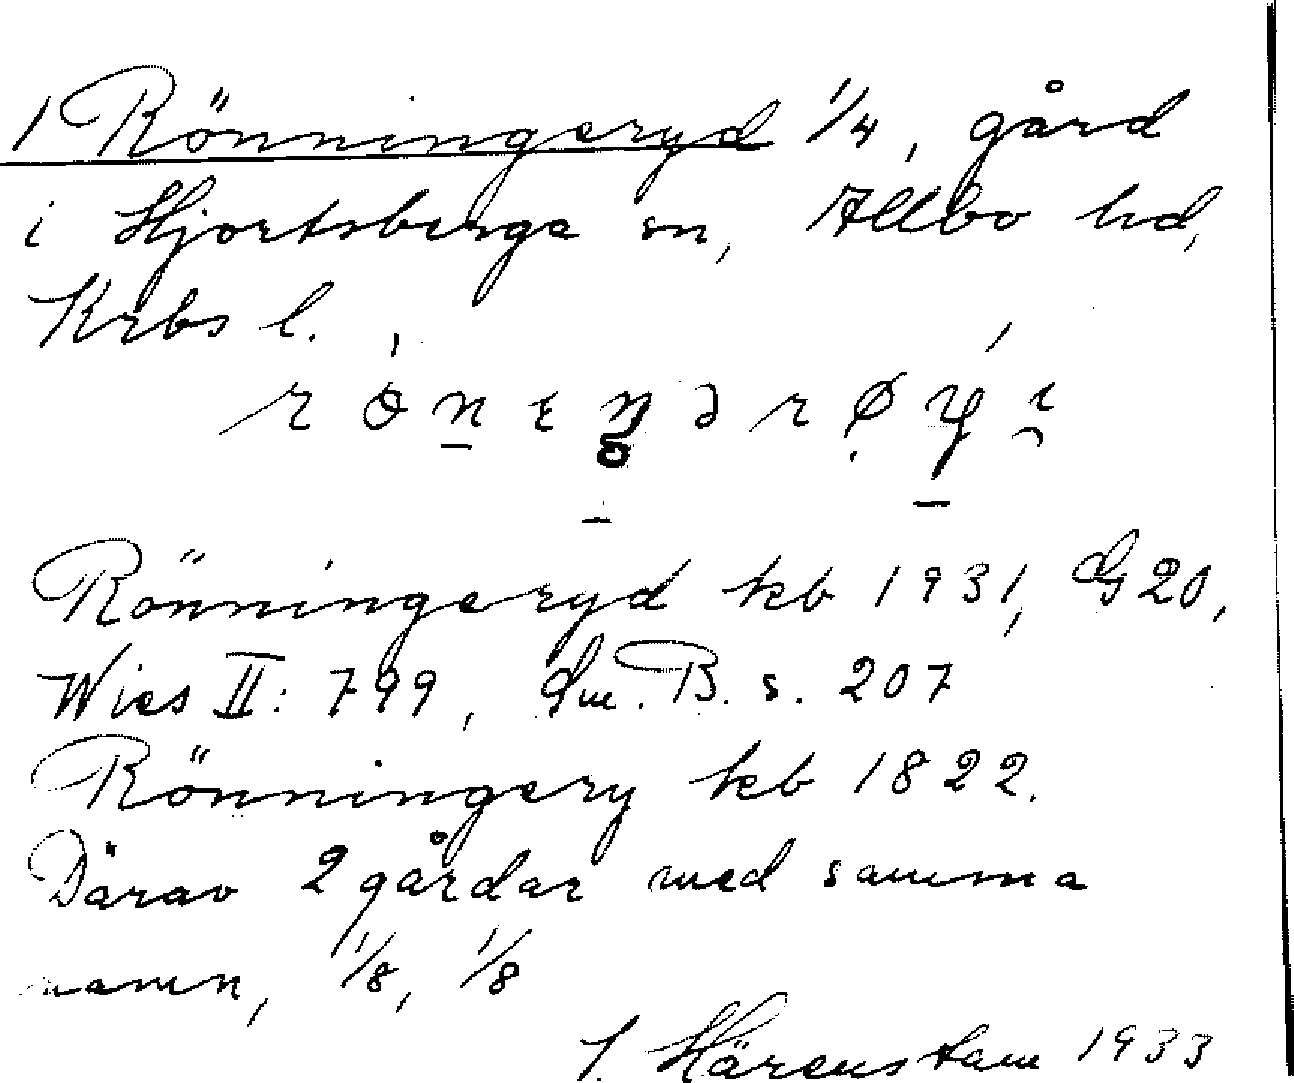 1 Rönningeryd 1/4, gård
i Hjortsberga sn, Allbo hd,
Krbs l.
Rönningeryd kb 1931, G 20,
Wies II: 799, Sm. B. s. 207
Rönningery kb 1822.
Därav 2 gårdar med samma
namn, 1/8, 1/8
J. Härenstam 1933